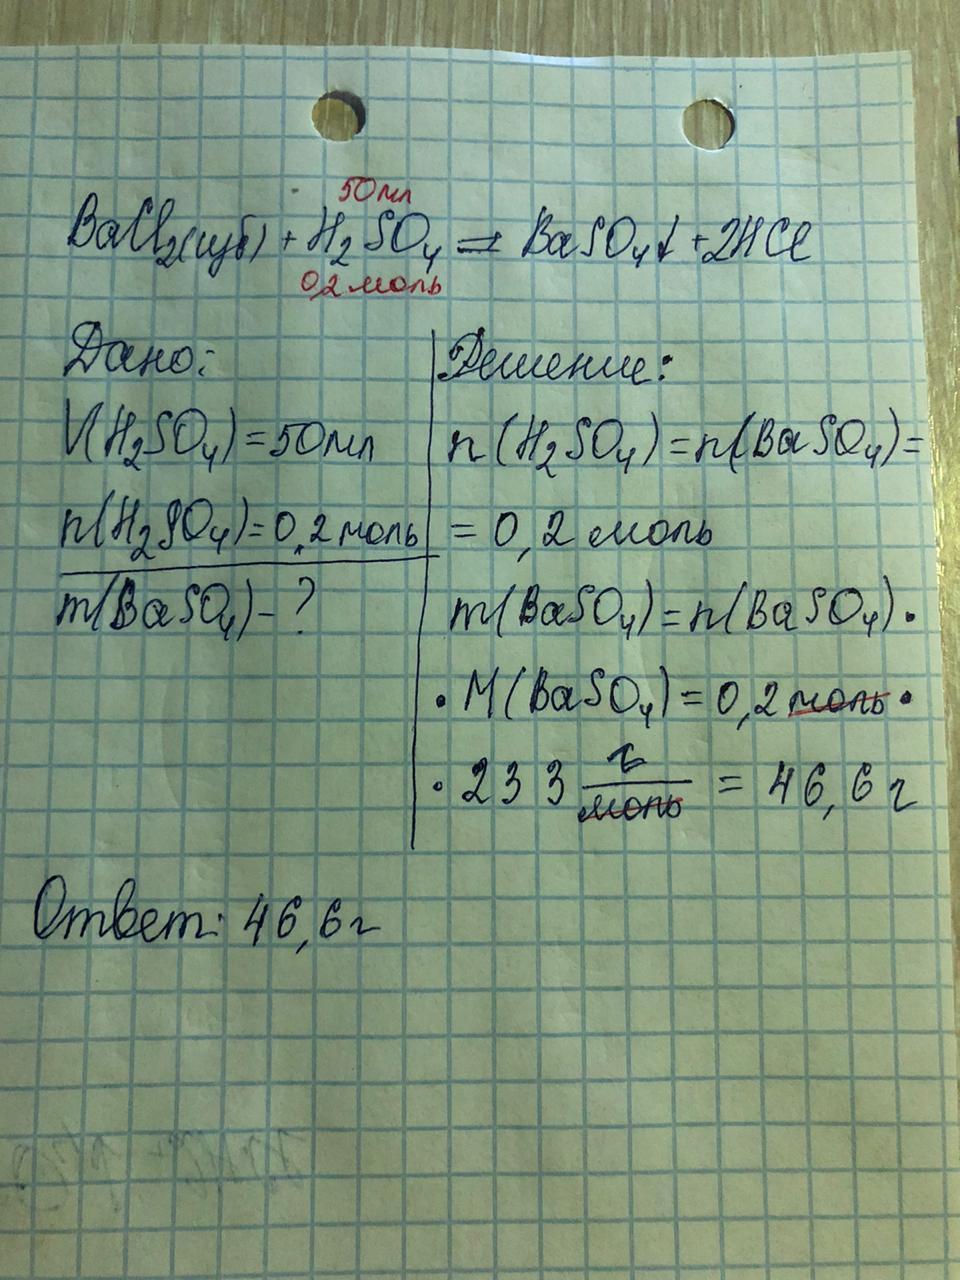 50мл
BaCl2(изб) + H2SO4 = BaSO4↓ + 2HCl
0,2 моль
Дано:
V(H2SO4) = 50мл
n(H2SO4) = 0,2 моль
m(BaSO4) - ?
Решение:
n(H2SO4) = n(BaSO4) =
= 0,2 моль
m(BaSO4) = n(BaSO4) ·
· M(BaSO4) = 0,2 моль ·
· 233 г/моль = 46,6 г
Ответ: 46,6 г